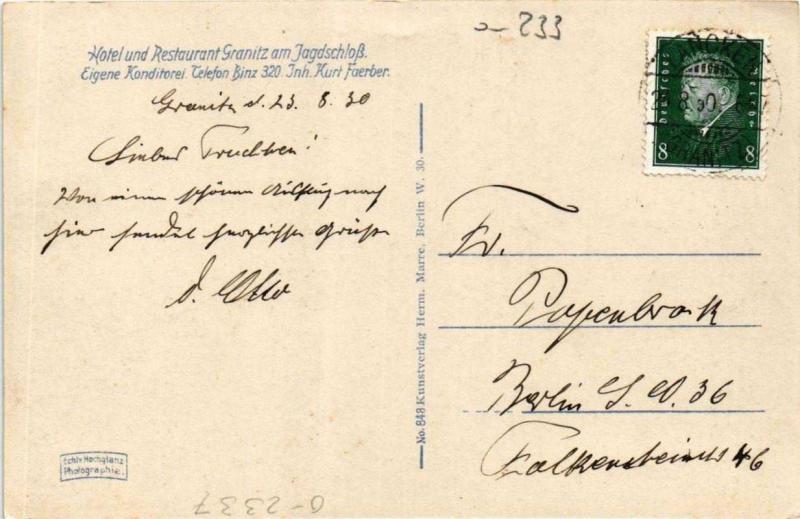 Hotel und Restaurant Granitz am Jagdschloß.
Eigene Konditorei. Telefon Binz 320. Inh. Kurt Faerber.
Granitz d. 23. 8. 30
Liebes Trudchen!
Von einem schönen Ausflug nach
hier sendet herzlichste Grüße
d. Otto
No. 848 Kunstverlag Herm. Marre, Berlin W. 30.
Fr.
Papenbrock
Berlin S. O. 36
Falkensteinstr 46
Deutsches Reich
8 8
233
Echte Hochglanz
Photographie.
0-2337